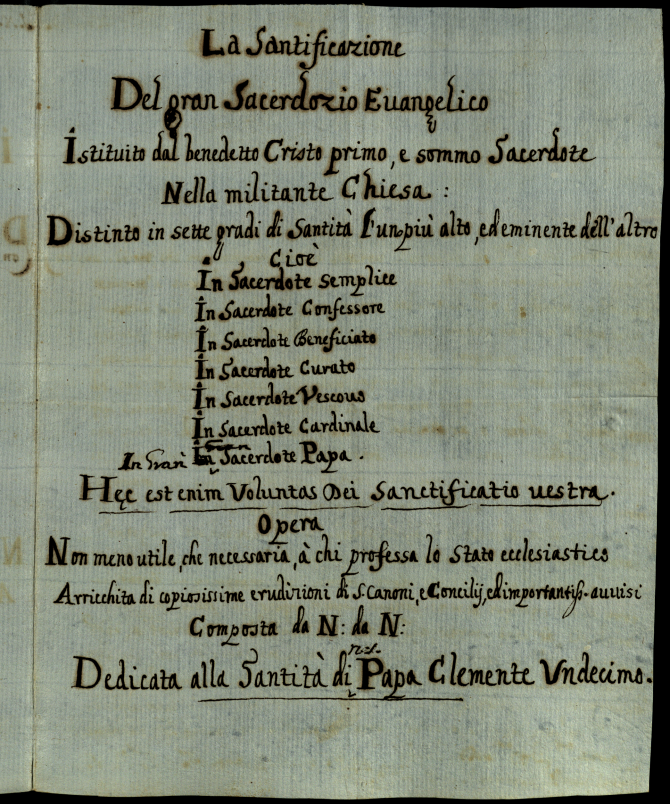 La Santificazione
Del gran Sacerdozio Euangelico
Istituito dal benedetto Cristo primo, e sommo Sacerdote
Nella militante Chiesa :
Distinto in sette gradi di Santità l'un più alto, ed eminente dell'altro
Cioè
In Sacerdote Semplice
In Sacerdote Confessore
In Sacerdote Beneficiato
In Sacerdote Curato
In Sacerdote Vescouo
In Sacerdote Cardinale
In Gran Sacerdote Papa .
Hęc est enim Voluntas Dei Sanctificatio uestra .
Opera
Non meno utile, che necessaria, à chi professa lo Stato ecclesiastico
Arricchita di copiosissime erudizioni di S. Canoni, e Concilij, ed importantiss. auuisi
Composta da N: da N:
Dedicata alla Santità di Papa Clemente Vndecimo .